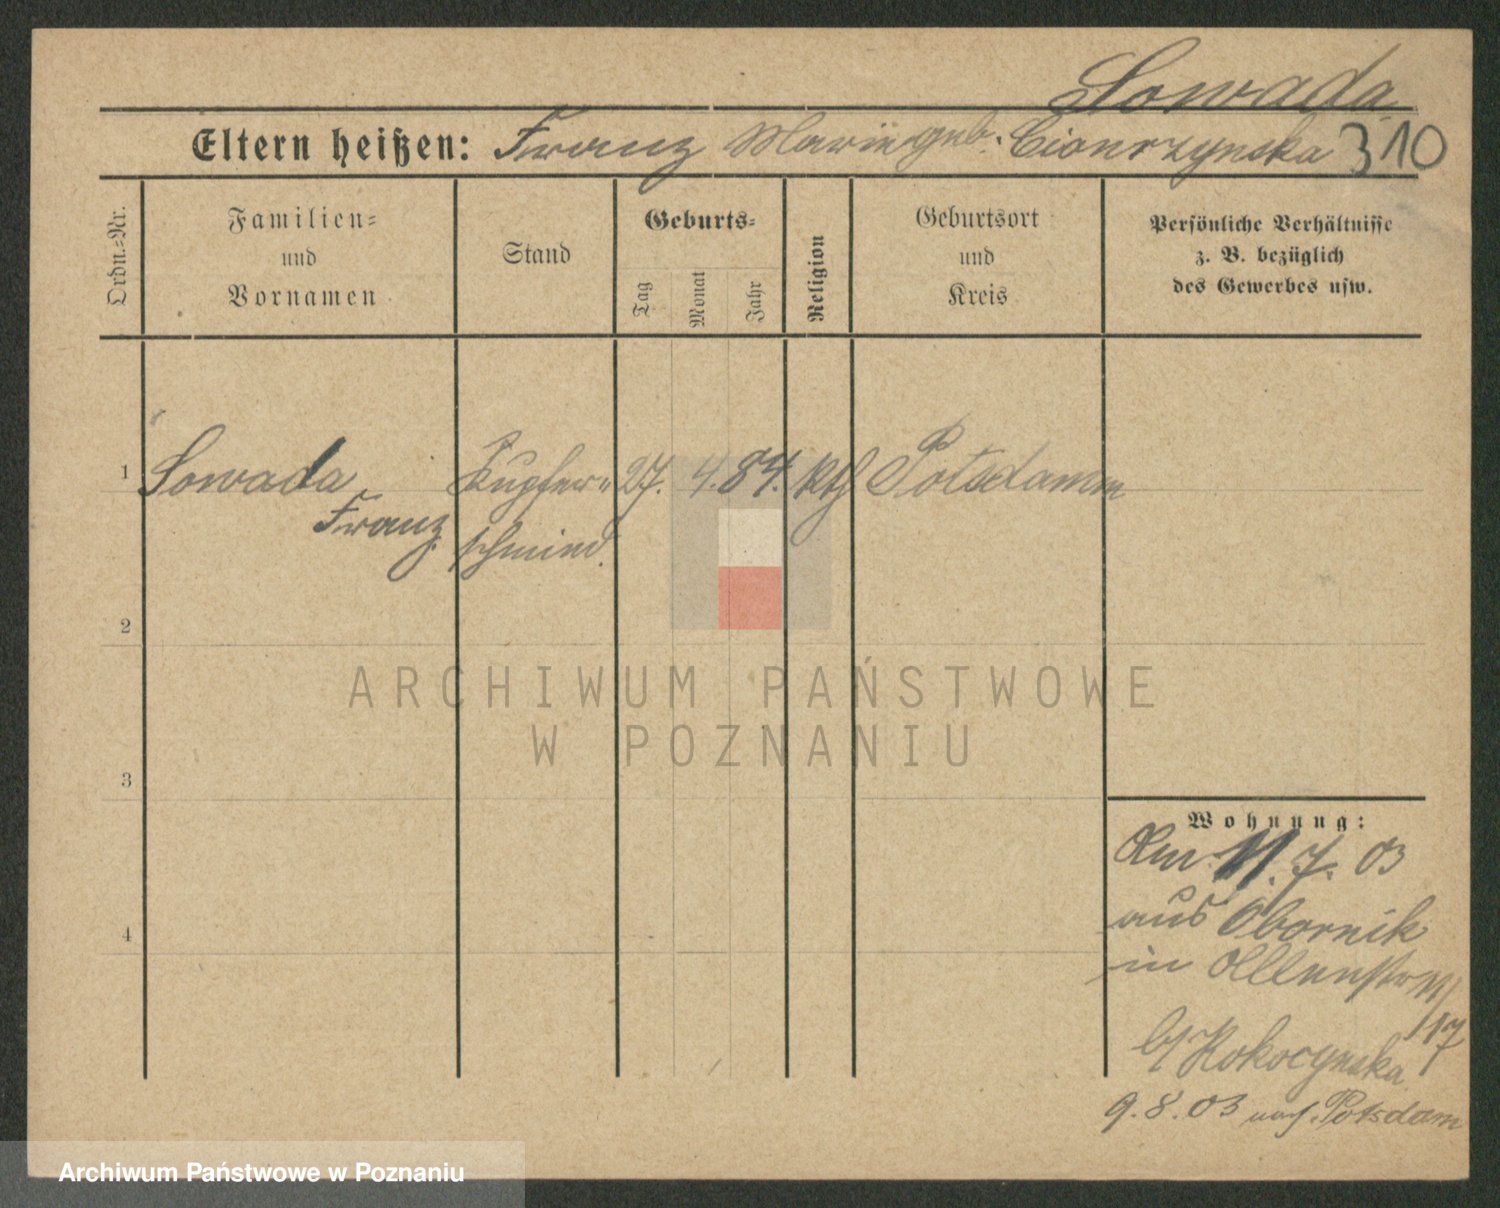 Sowada
Eltern heißen: Franz Marie geb. 310
Ordn.-Nr.
Familien-
und
Vornamen
Stand
Geburts-
Tag
Monat
Jahr
Religion
Geburtsort
und
Kreis
Persönliche Verhältnisse
z. B. bezüglich
des Gewerbes usw.
1 Sowada Kupfer- 27. 4. 84. kth Potsdamm
Franz schmied.
2
3
4
ARCHIWUM PAŃSTWOWE
W POZNANIU
Wohnung:
Am 11. 7. 03
aus Obornik
in
17
b/ Rokocynska
9. 8. 03 nach Potsdam
Archiwum Państwowe w Poznaniu